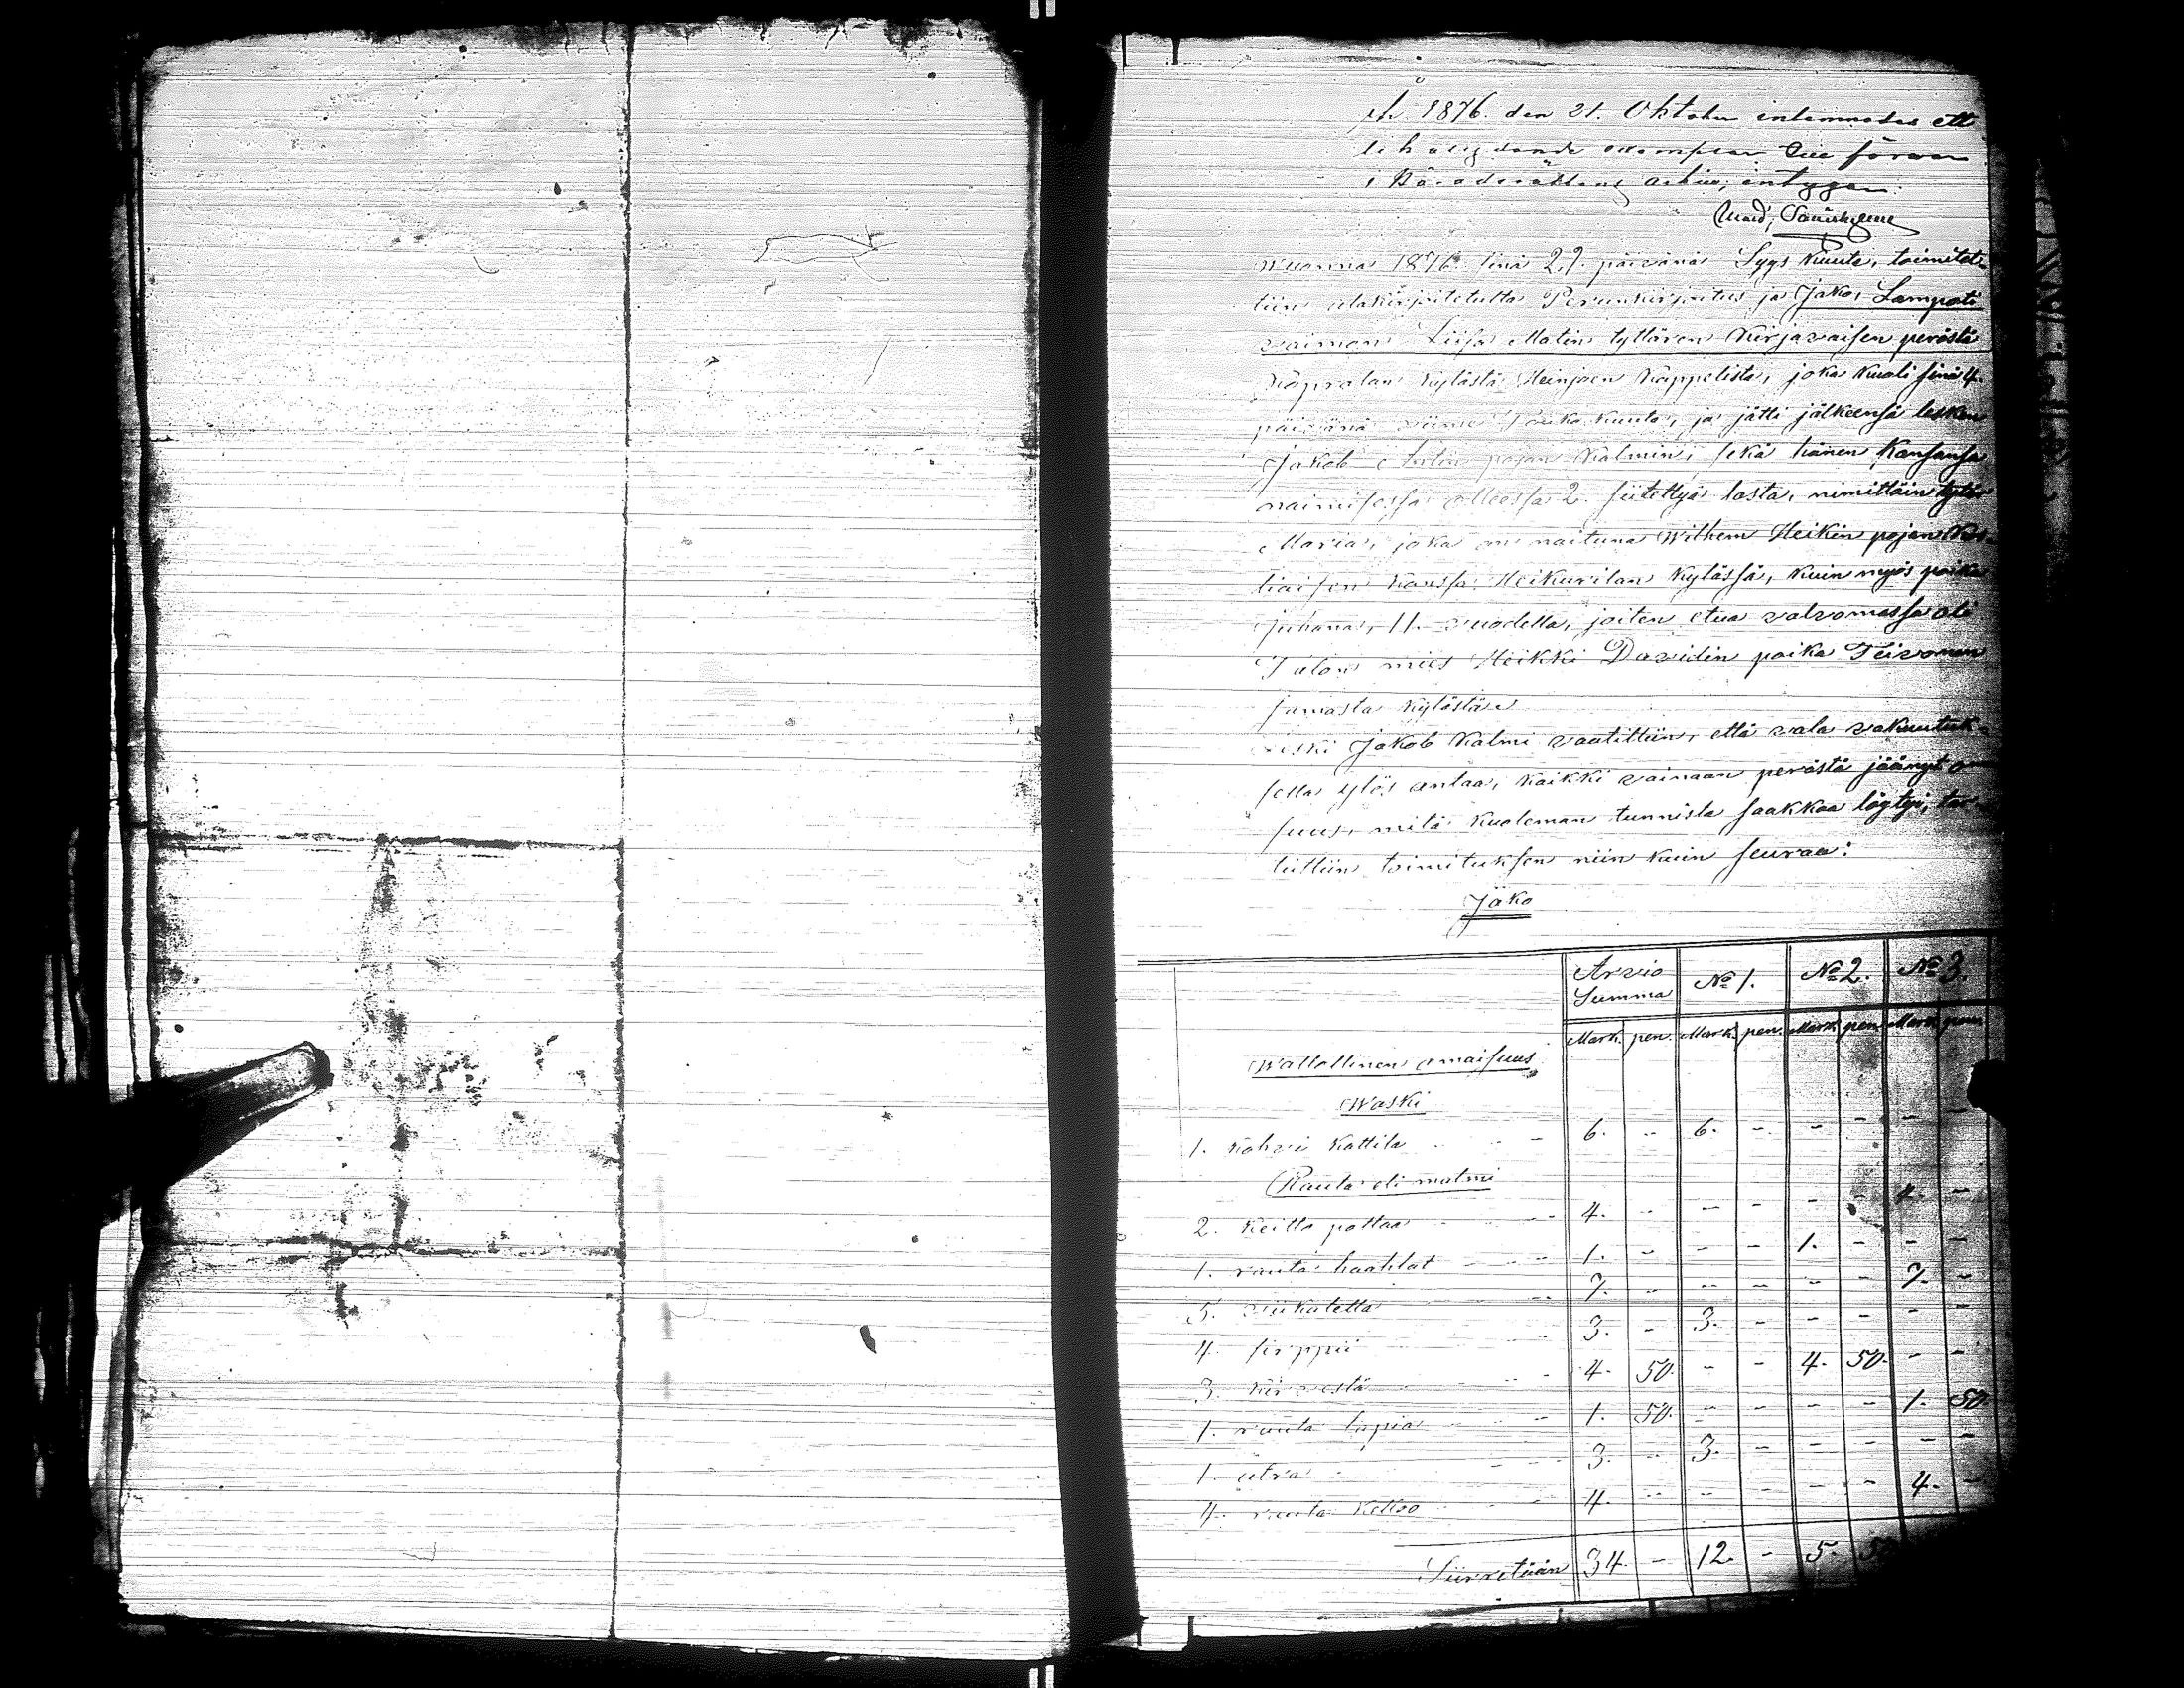 År 1876 den 21. Oktober inlemnades ett
likalydande exemplar att förvaras
i Häradsrättens arkiv, intygar
Wuonna 1876 sinä 27. päivänä Syys kuuta, toimitet-
tiin allakirjoitetulta Perunkirjoitus ja Jako, Lampoti
vaimon Liisa Matin tyttären Kirjavaisen perästä
Käpralan kylästä Heinjoen kappelista, joka kuoli sinä 4.
päivänä viime Touko kuuta, ja jätti jälkeensä lesken
Jakob Antin pojan Kalmin, sekä hänen kansansa
naimisessa ollessa 2. siitettyä lasta, nimittäin tytär
Maria, joka on naituna Wilhem Heikin pojan
liaisen kanssa Heikurilan kylässä, kuin myös poika
Juhana, 11. vuodella, joiten etua valvomassa oli
Talon mies Heikki Davidin poika Teivonen
samasta kylästä.
Leski Jakob Kalmi vaatittiin, että vala vakuutuk-
sella ylös antaa, kaikki vainaan perästä jäänyt oma
suus, mitä kuoleman tunnista saakkaa löytyi, tar-
tuttiin toimituksen niin kuin seuraa:
Jako
Arvio Summa No 1. No 2. No 3.
Mark. pen. Mark. pen. Mark. pen. Mark. pen.
Wallollinen omaisuus
Waski
1. kahvi kattila - - 6. - 6. - - - - -
Rauta eli malmi
2. keitto pottaa - - 4. - - - - - 4. -
1. rauta haahlat - - 1. - - - 1. - - -
5. viikatetta - - 7. - - - - - 7. -
4. sirppii - - 3. - 3. - - - - -
3. kirvestä - - 4. 50. - - 4. 50. - -
1. rauta lapia - - 1. 50. - - - - 1. 50.
1. atra - - 3. - 3. - - - - -
4. rauta - - 4. - - - - - 4. -
Siirretään 34 - 12. - 5.